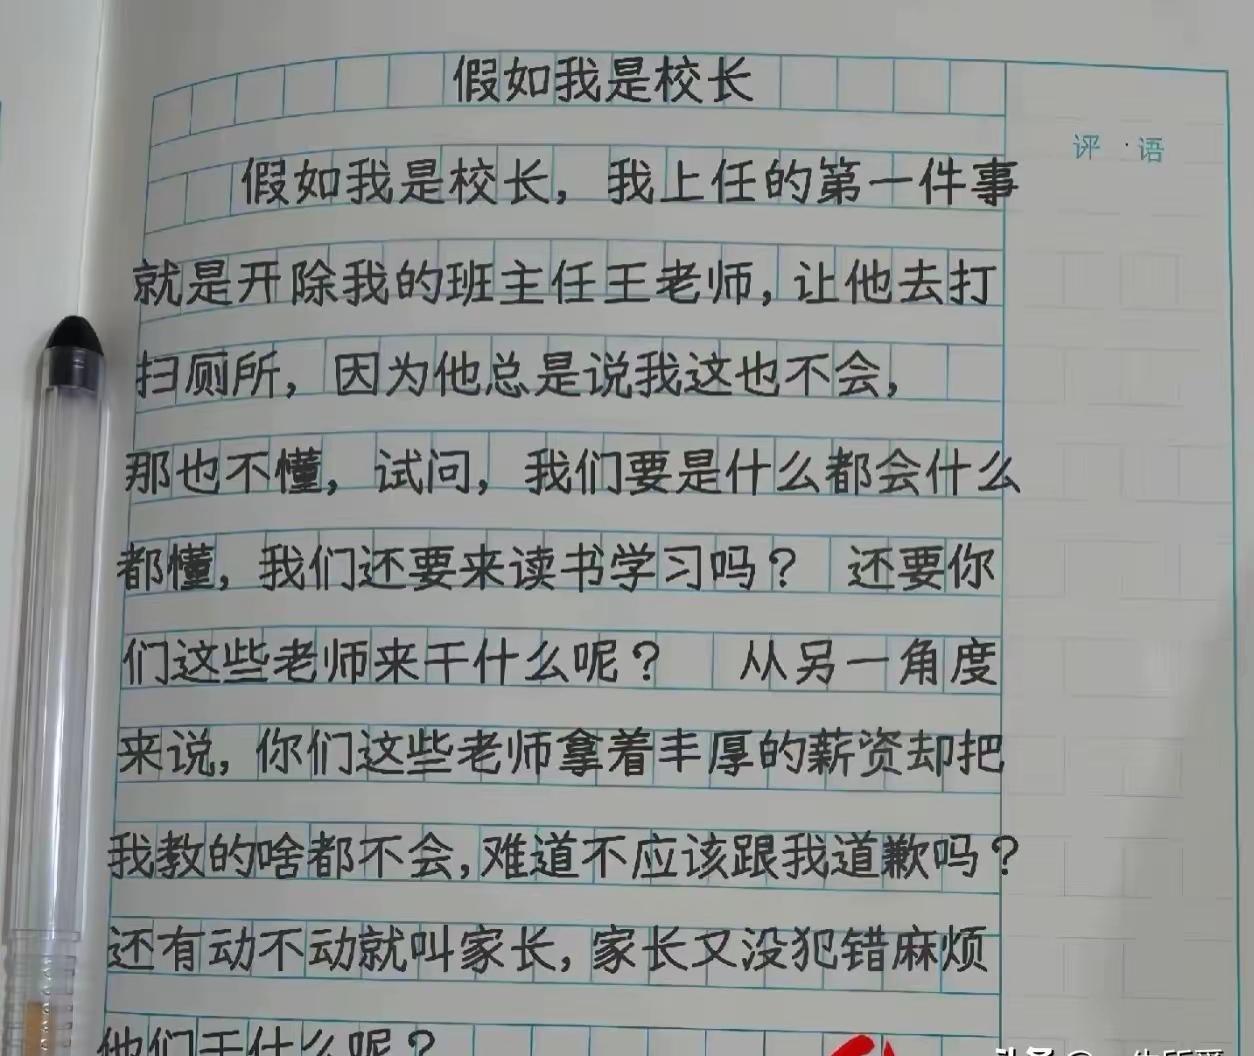 假如我是校长
评·语
假如我是校长，我上任的第一件事
就是开除我的班主任王老师，让他去打
扫厕所，因为他总是说我这也不会，
那也不懂，试问，我们要是什么都会什么
都懂，我们还要来读书学习吗？还要你
们这些老师来干什么呢？从另一角度
来说，你们这些老师拿着丰厚的薪资却把
我教的啥都不会，难道不应该跟我道歉吗？
还有动不动就叫家长，家长又没犯错麻烦
他们干什么呢？